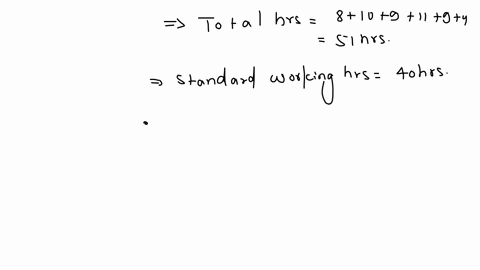 => Total hrs = 8+10+9+11+9+4
= 51 hrs.
=> standard working hrs = 40hrs.